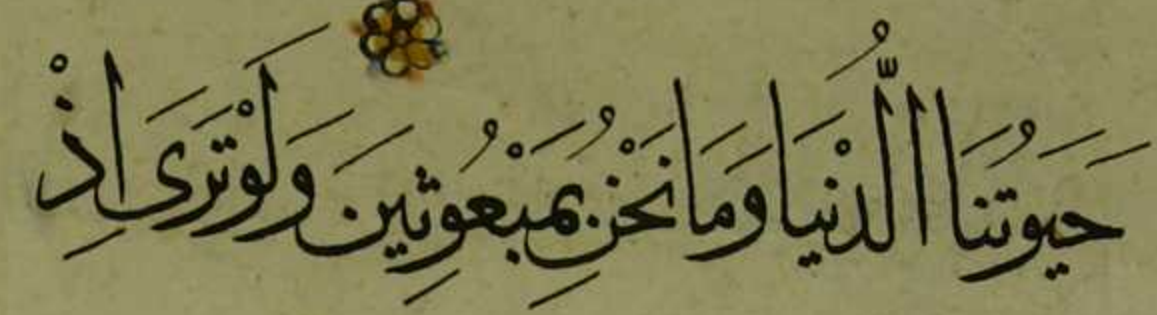 حَيوتُنَا الدُّنْيَا وَمَا نَحْنُ بِمَبْعُوثِينَ وَلَوْ تَرَى اِذْ